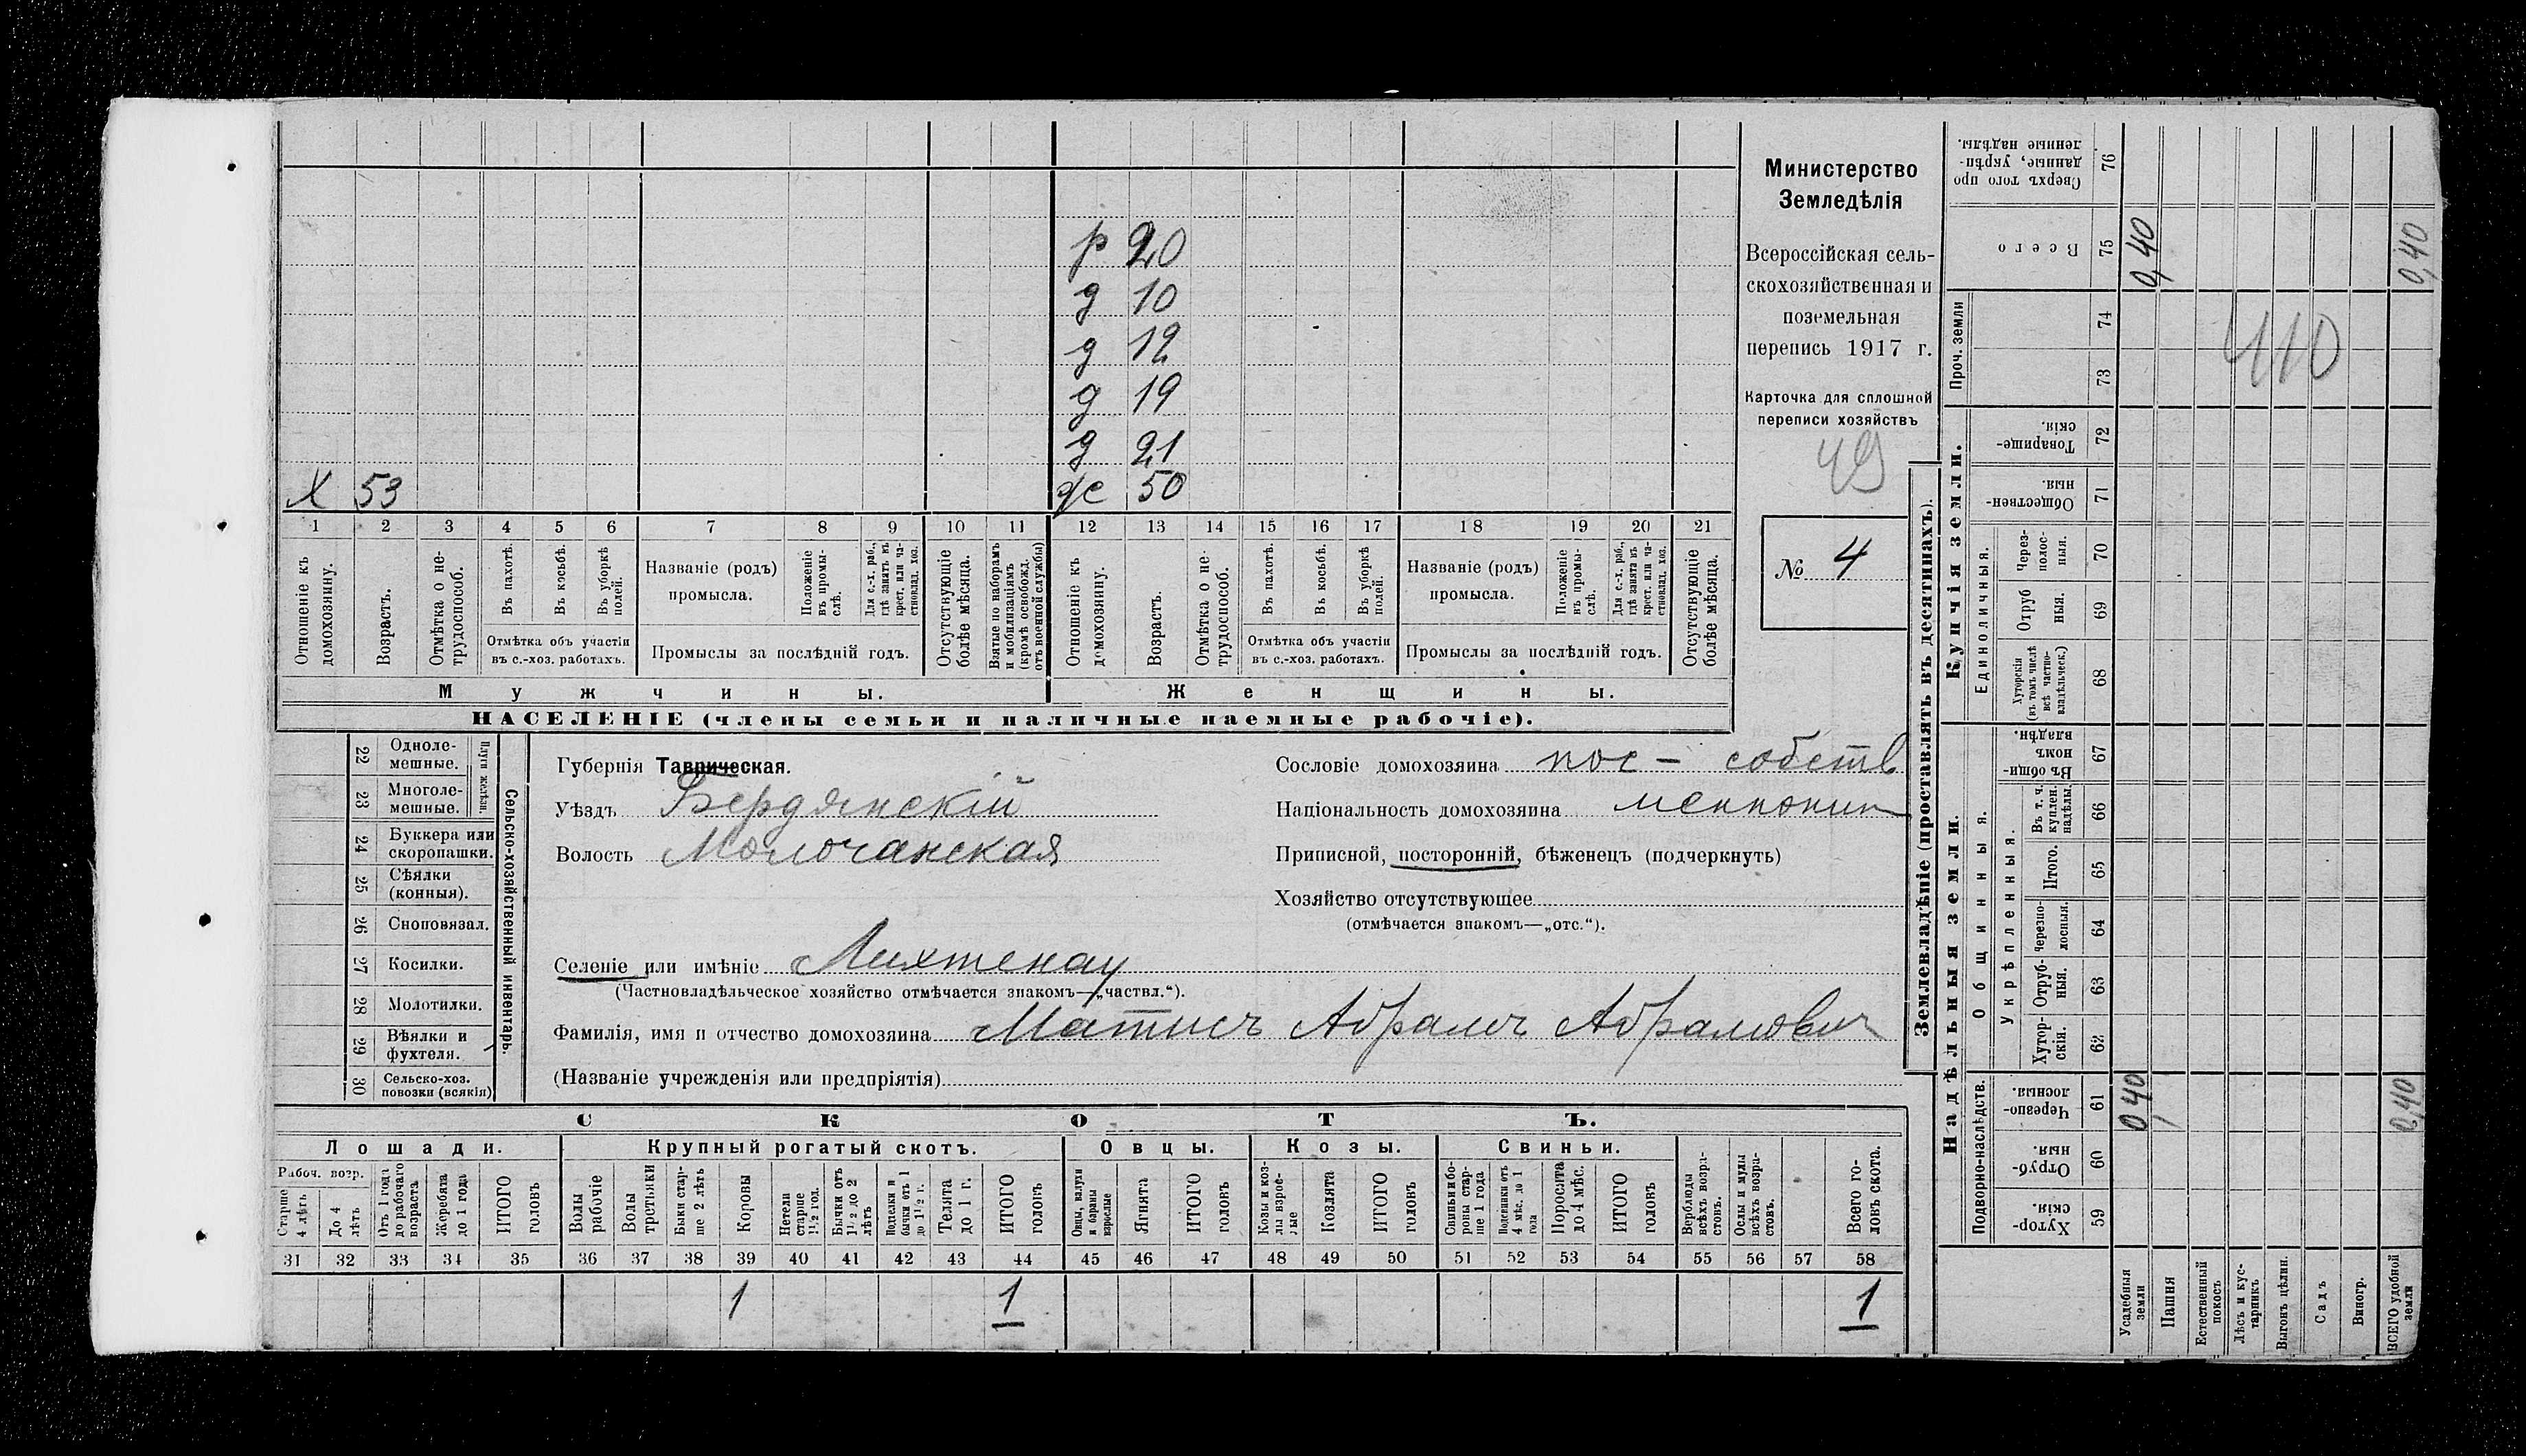 р 20
д 10
д 12
д 19
д 21
х 53
ж 50
1 2 3 4 5 6 7 8 9 10 11 12 13 14 15 16 17 18 19 20 21
Отношеніе къ домохозяину.
Возрастъ.
Отмѣтка о не-трудоспособ.
Въ пахотѣ.
Въ косьбѣ.
Въ уборкѣ полей.
Названіе (родъ) промысла.
Положеніе въ промы-слѣ.
Для с.-х. раб., гдѣ занятъ въ крест. или ча-стновлад. хоз.
Отсутствующіе болѣе мѣсяца.
Взятые по наборамъ и мобилизаціямъ (кромѣ освобожд. отъ военной службы)
Отношеніе къ домохозяину.
Возрастъ.
Отмѣтка о не-трудоспособ.
Въ пахотѣ.
Въ косьбѣ.
Въ уборкѣ полей.
Названіе (родъ) промысла.
Положеніе въ промы-слѣ.
Для с.-х. раб., гдѣ занята въ крест. или ча-стновлад. хоз.
Отсутствующіе болѣе мѣсяца.
Отмѣтка объ участіи въ с.-хоз. работахъ.
Промыслы за послѣдній годъ.
Отмѣтка объ участіи въ с.-хоз. работахъ.
Промыслы за послѣдній годъ.
Мужчины.
Женщины.
НАСЕЛЕНІЕ (члены семьи и наличные наемные рабочіе).
Министерство
Земледѣлія
Всероссійская сель-
скохозяйственная и
поземельная
перепись 1917 г.
Карточка для сплошной
переписи хозяйствъ
49
№ 4
Сельско-хозяйственный инвентарь.
Плуги желѣзн.
22 Одноле-мешные.
23 Многоле-мешные.
24 Буккера или скоропашки.
25 Сѣялки (конныя).
26 Сноповязал.
27 Косилки.
28 Молотилки.
29 Вѣялки и фухтеля.
30 Сельско-хоз. повозки (всякія)
Губернія Таврическая.
Уѣздъ Бердянскій
Волость Молочанская
Селеніе или имѣніе Лихтенау
(Частновладѣльческое хозяйство отмѣчается знакомъ—„частвл.“).
Фамилія, имя и отчество домохозяина Матисъ Абрамъ Абрамович
(Названіе учрежденія или предпріятія)
Сословіе домохозяина пос - собств
Національность домохозяина меннонит
Приписной, посторонній, бѣженецъ (подчеркнуть)
Хозяйство отсутствующее
(отмѣчается знакомъ—„отс.“).
СКОТЪ.
Лошади.
Крупный рогатый скотъ.
Овцы.
Козы.
Свиньи.
Рабоч. возр.
Старше 4 лѣтъ
До 4 лѣтъ
Отъ 1 года до рабочаго возраста
Жеребята до 1 года
ИТОГО головъ
Волы рабочіе
Волы третьяки
Быки стар-ше 2 лѣтъ
Коровы
Нетели старше 1½ год.
Бычки отъ 1½ до 2 лѣтъ
Подтелки и бычки отъ 1 до 1½ г.
Телята до 1 г.
ИТОГО головъ
Овцы, валухи и бараны взрослые
Ягнята
ИТОГО головъ
Козы и коз-лы взрос-лые
Козлята
ИТОГО головъ
Свиньи и бо-ровы стар-ше 1 года
Подсвинки отъ 4 мѣс. до 1 года
Поросята до 4 мѣс.
ИТОГО головъ
Верблюды всѣхъ возра-стовъ.
Ослы и мулы всѣхъ возра-стовъ.
Всего го-ловъ скота.
31 32 33 34 35 36 37 38 39 40 41 42 43 44 45 46 47 48 49 50 51 52 53 54 55 56 57 58
1 1 1
Землевладѣніе (проставлять въ десятинахъ).
Надѣльныя земли.
Купчія земли.
Проч. земли
Подворно-наслѣдств.
Общинныя.
Укрѣпленныя.
Единоличныя.
Хутор-скія. 59
Отруб-ныя. 60
Черезпо-лосныя. 61
Хутор-скія. 62
Отруб-ныя. 63
Черезпо-лосныя. 64
Итого. 65
Въ т. ч. куплен. надѣлы. 66
Въ общи-номъ владѣн. 67
Хуторскія (въ томъ числѣ всѣ частно-владѣльческ.) 68
Отруб ныя. 69
Через-полос-ныя. 70
Обществен-ныя. 71
Товарище-скія. 72
73
74
Всего 75
Сверхъ того про данные, укрѣп-ленные надѣлы. 76
Усадебныя земли
Пашня
Естественный покосъ
Лѣсъ и кус-тарникъ
Выгонъ цѣлин.
Садъ
Виногр.
ВСЕГО удобной земли
0,40
0,40
0,40
0,40
410